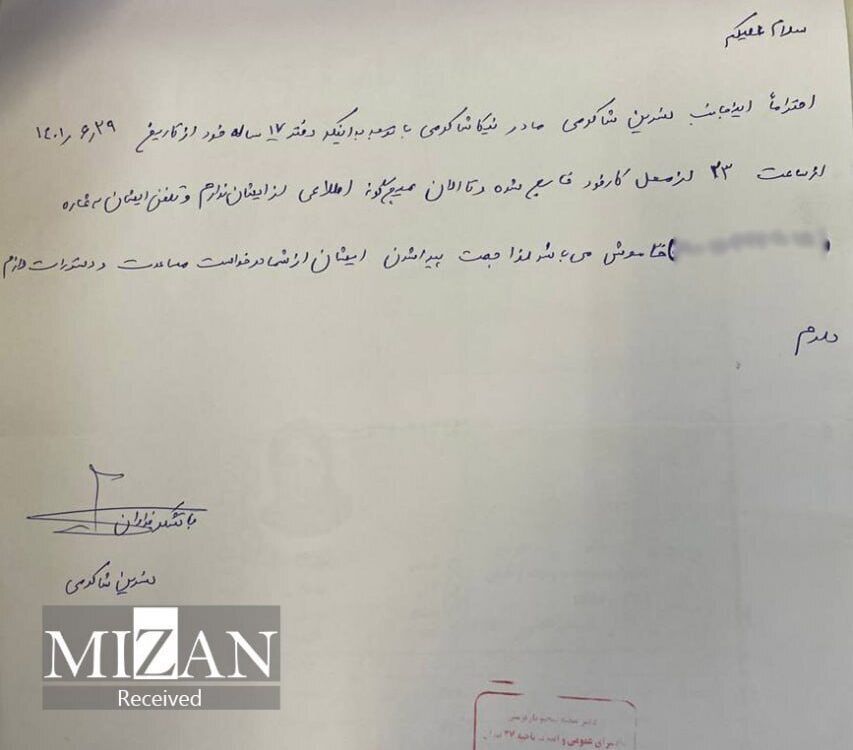 سلام علیکم
احتراماً اینجانب نسرین شاکرمی مادر نیکا شاکرمی با توجه به اینکه دختر ۱۷ ساله خود از تاریخ ۱۴۰۱٫۶٫۲۹
از ساعت ۲۳ از محل کار خود خارج شده و تا الان هیچگونه اطلاعی از ایشان ندارم و تلفن ایشان به شماره
( ) خاموش می باشد لذا جهت پیدا شدن ایشان از شما درخواست مساعدت و دستورات لازم
دارم
با تشکر فراوان
نسرین شاکرمی
MIZAN
Received
دادسرای عمومی و انقلاب ناحیه ۲۷ تهران